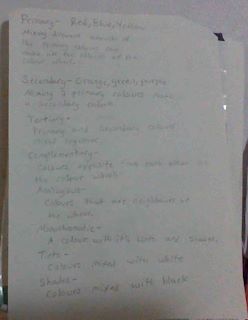 Primary - Red, Blue, Yellow
Mixing different amounts of
the primary colours can
make all the colours of the
colour wheel.
Secondary - Orange, green, purple
Mixing 2 primary colours make
a secondary colour.
Tertiary -
Primary and Secondary colours
mixed together.
Complementary -
Colours opposite each other on
the colour wheel.
Analogous -
Colours that are neighbours on
the wheel.
Monochromatic -
A colour with it's tints and shades.
Tints -
Colours mixed with white
Shades -
Colours mixed with black